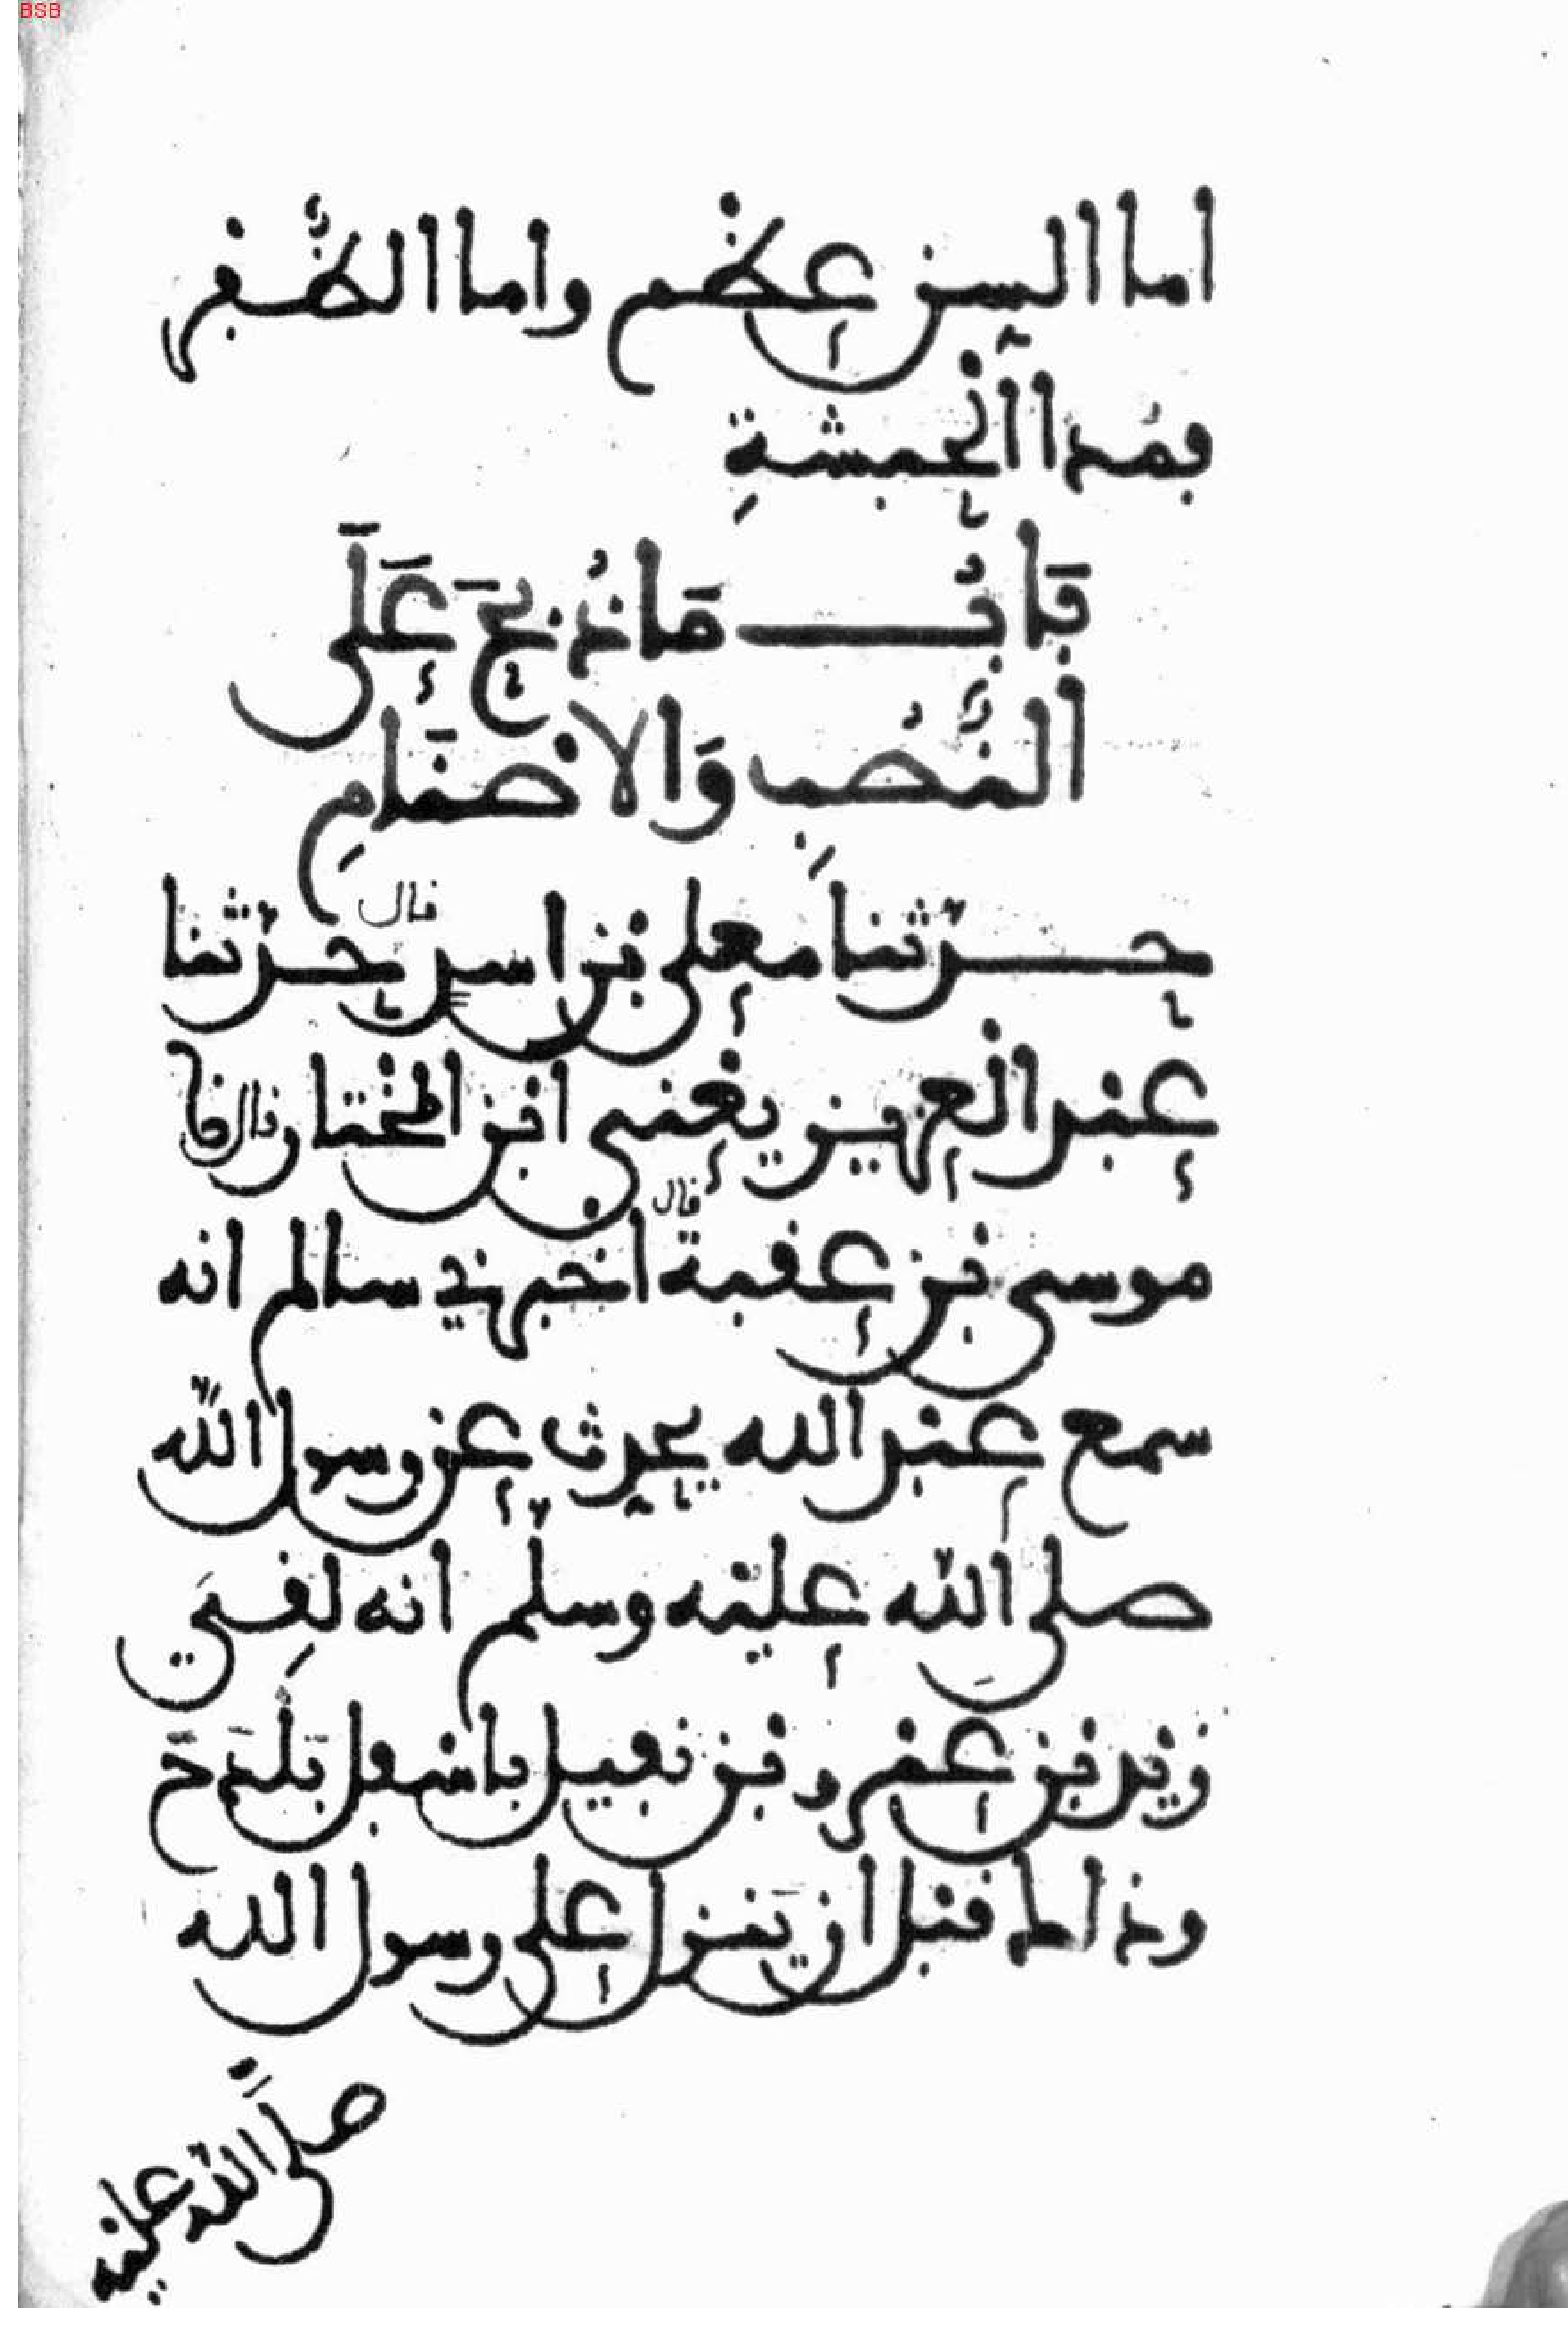 BSB
اما السن عظم واما الظفر
فمدا الحبشةِ
بَابُ مَا ذُبِحَ عَلَى
النُّصُبِ وَالاصْنَامِ
حدّثنا معلى بن اسد قال حدّثنا
عبد العزيز يعني ابن المختار قال نا
موسى بن عقبة قال اخبرني سالم انه
سمع عبد الله يحدث عن رسول الله
صلى الله عليه وسلم انه لقِيَ
زيد بن عمرو بن نفيل باسفل بَلْدَحَ
وذاك قبل ان يَنزل على رسول الله
صلى الله عليه